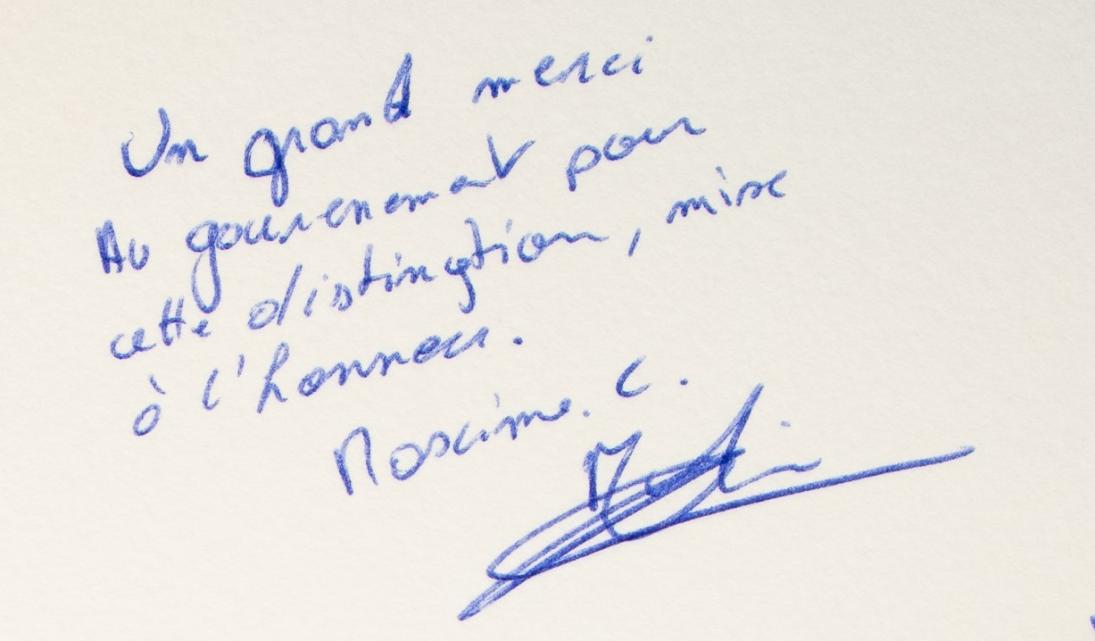 Un grand merci
Au gouvernement pour
cette distinction, mise
à l'honneur.
Maxime. C.